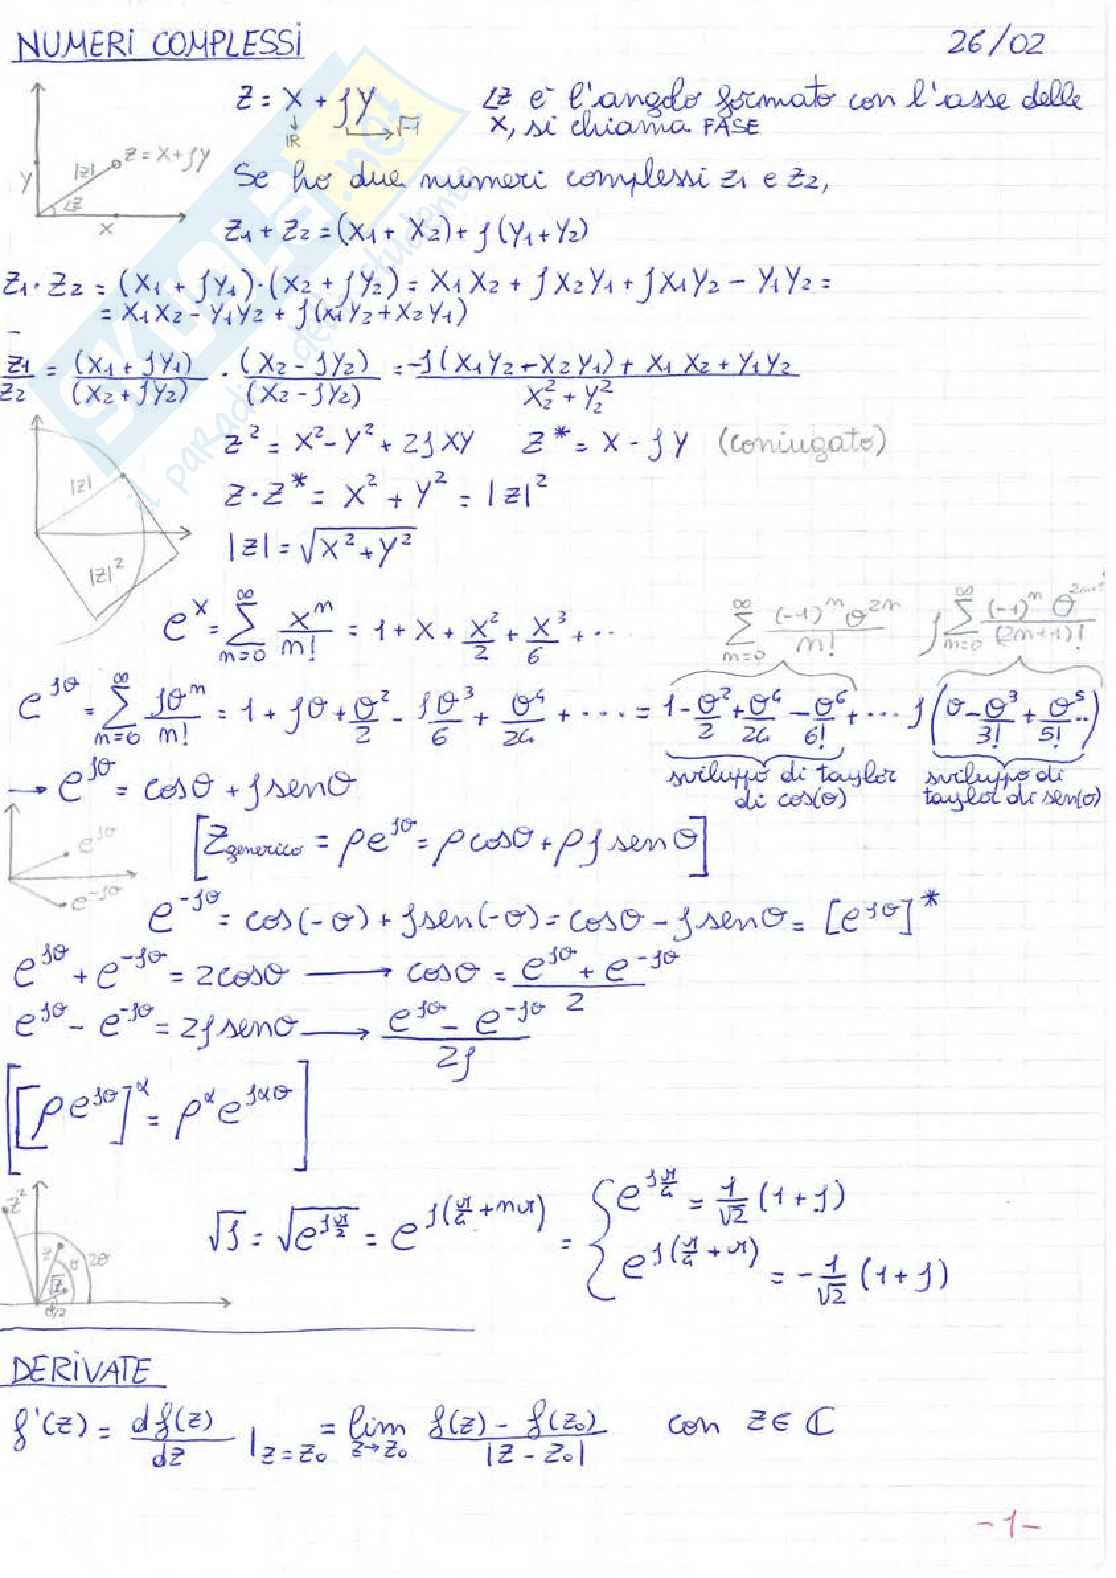 NUMERI COMPLESSI 26/02
z = x + jy ∠z è l'angolo formato con l'asse delle
↓ ℝ → √-1 x, si chiama FASE
y |z| z = x + jy ∠z x
Se ho due numeri complessi z1 e z2,
z1 + z2 = (x1 + x2) + j(y1 + y2)
z1 · z2 = (x1 + jy1)·(x2 + jy2) = x1x2 + jx2y1 + jx1y2 - y1y2 =
= x1x2 - y1y2 + j(x1y2 + x2y1)
z1/z2 = (x1 + jy1)/(x2 + jy2) · (x2 - jy2)/(x2 - jy2) = (-j(x1y2 + x2y1) + x1x2 + y1y2)/(x2² + y2²)
z² = x² - y² + 2jxy z* = x - jy (coniugato)
|z| z · z* = x² + y² = |z|²
|z|² |z| = √(x² + y²)
e^x = ∑_{n=0}^{∞} x^n/n! = 1 + x + x²/2 + x³/6 + ... ∑_{n=0}^{∞} (-1)^n θ^{2n}/n! j∑_{n=0}^{∞} (-1)^n θ^{2n+1}/(2n+1)!
e^{jθ} = ∑_{n=0}^{∞} jθ^n/n! = 1 + jθ + θ²/2 - jθ³/6 + θ⁴/24 + ... = 1 - θ²/2 + θ⁴/24 - θ⁶/6! + ... j(θ - θ³/3! + θ⁵/5! ..)
→ e^{jθ} = cosθ + jsenθ sviluppo di taylor di cos(θ) sviluppo di taylor di sen(θ)
e^{jθ} e^{-jθ} [z generico = ρe^{jθ} = ρcosθ + ρjsenθ]
e^{-jθ} = cos(-θ) + jsen(-θ) = cosθ - jsenθ = [e^{jθ}]*
e^{jθ} + e^{-jθ} = 2cosθ → cosθ = (e^{jθ} + e^{-jθ})/2
e^{jθ} - e^{-jθ} = 2jsenθ → (e^{jθ} - e^{-jθ})/2j
[[ρe^{jθ}]^α = ρ^α e^{jαθ}]
z² z √z θ 2θ θ/2
√j = √(e^{jπ/2}) = e^{j(π/4 + nπ)} = { e^{jπ/4} = 1/√2 (1 + j)
e^{j(π/4 + π)} = -1/√2 (1 + j)
DERIVATE
f'(z) = df(z)/dz |z=z0 = lim z→z0 (f(z) - f(z0))/|z - z0| con z ∈ ℂ
-1-
SKUOLA.net
il paradiso dello studente